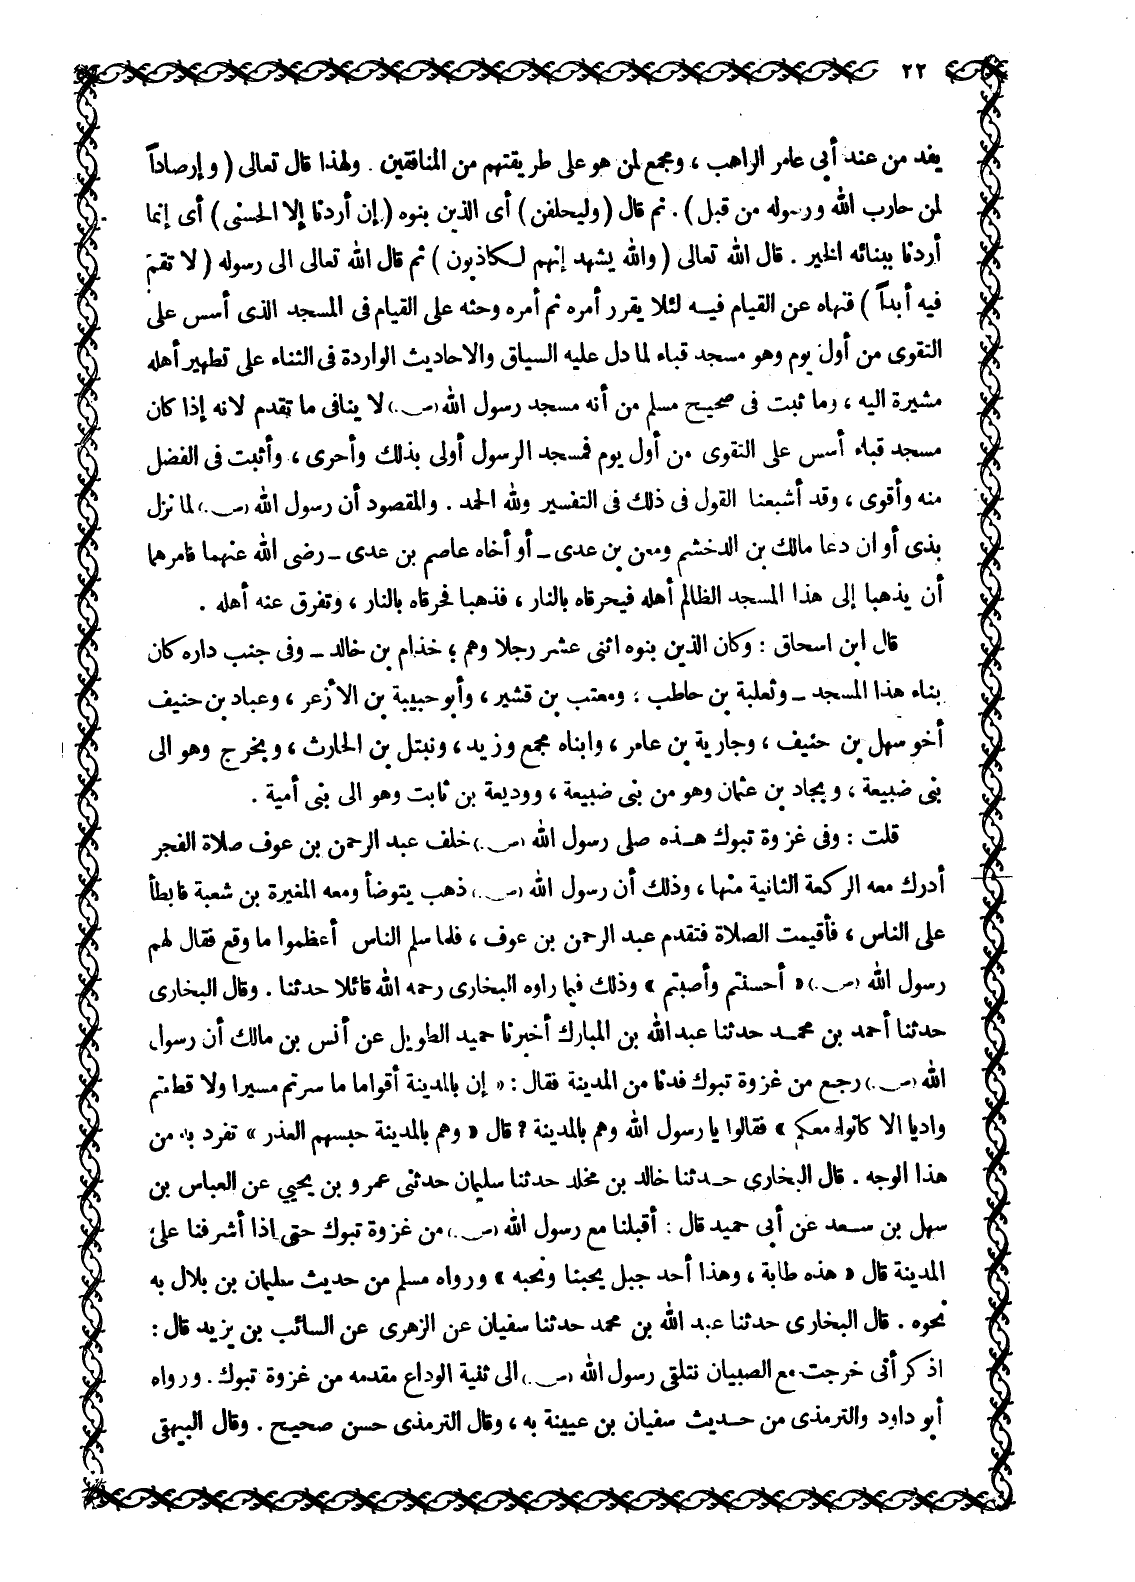 ٢٢
يفد من عند أبى عامر الراهب ، ومجمع لمن هو على طريقتهم من المنافقين . ولهذا قال تعالى ( وإرصاداً
لمن حارب الله ورسوله من قبل ) . ثم قال ( وليحلفن ) أى الذين بنوه ( إن أردنا إلا الحسنى ) أى إنما
أردنا ببنائه الخير . قال الله تعالى ( والله يشهد إنهم لـكاذبون ) ثم قال الله تعالى الى رسوله ( لا تقم
فيه أبداً ) فنهاه عن القيام فيـه لئلا يقرر أمره ثم أمره وحثه على القيام فى المسجد الذى أسس على
التقوى من أول يوم وهو مسجد قباء لما دل عليه السياق والاحاديث الواردة فى الثناء على تطهير أهله
مشيرة اليه ، وما ثبت فى صحيح مسلم من أنه مسجد رسول الله (ص.) لا ينافى ما تقدم لانه إذا كان
مسجد قباء أسس على التقوى من أول يوم فمسجد الرسول أولى بذلك وأحرى ، وأثبت فى الفضل
منه وأقوى ، وقد أشبعنا القول فى ذلك فى التفسير ولله الحمد . والمقصود أن رسول الله (ص.) لما نزل
بذى أوان دعا مالك بن الدخشم ومعن بن عدى ــ أو أخاه عاصم بن عدى ــ رضى الله عنهما فامرهما
أن يذهبا إلى هذا المسجد الظالم أهله فيحرقاه بالنار ، فذهبا فحرقاه بالنار ، وتفرق عنه أهله .
قال ابن اسحاق : وكان الذين بنوه اثنى عشر رجلا وهم ؛ خذام بن خالد ــ وفى جنب داره كان
بناء هذا المسجد ــ وثعلبة بن حاطب ؛ ومعتب بن قشير ، وأبو حبيبة بن الأزعر ، وعباد بن حنيف
أخو سهل بن حنيف ، وجارية بن عامر ، وابناه مجمع وزيد ، ونبتل بن الحارث ، وبخرج وهو الى
بنى ضبيعة ، وبجاد بن عثمان وهو من بنى ضبيعة ، ووديعة بن ثابت وهو الى بنى أمية .
قلت : وفى غزوة تبوك هـذه صلى رسول الله (ص.) خلف عبد الرحمن بن عوف صلاة الفجر
أدرك معه الركعة الثانية منها ، وذلك أن رسول الله (ص.) ذهب يتوضأ ومعه المغيرة بن شعبة فابطأ
على الناس ، فأقيمت الصلاة فتقدم عبد الرحمن بن عوف ، فلما سلم الناس أعظموا ما وقع فقال لهم
رسول الله (ص.) « أحسنتم وأصبتم » وذلك فيما راوه البخارى رحمه الله قائلا حدثنا . وقال البخارى
حدثنا أحمد بن محمـد حدثنا عبد الله بن المبارك أخبرنا حميد الطويل عن أنس بن مالك أن رسول
الله (ص.) رجع من غزوة تبوك فدنا من المدينة فقال : « إن بالمدينة أقواما ما سرتم مسيرا ولا قطعتم
واديا الا كانوا معكم » فقالوا يا رسول الله وهم بالمدينة ؟ قال « وهم بالمدينة حبسهم العذر » تفرد به من
هذا الوجه . قال البخارى حـدثنا خالد بن مخلد حدثنا سليمان حدثنى عمرو بن يحيي عن العباس بن
سهل بن سـعد عن أبى حميد قال : أقبلنا مع رسول الله (ص.) من غزوة تبوك حتى اذا أشرفنا على
المدينة قال « هذه طابة ، وهذا أحد جبل يحبنا ونحبه » ورواه مسلم من حديث سليمان بن بلال به
نحوه . قال البخارى حدثنا عبد الله بن محمد حدثنا سفيان عن الزهرى عن السائب بن يزيد قال :
اذكر أنى خرجت مع الصبيان نتلقى رسول الله (ص.) الى ثنية الوداع مقدمه من غزوة تبوك . ورواه
أبو داود والترمذى من حـديث سفيان بن عيينة به ، وقال الترمذى حسن صحيح . وقال البيهقى